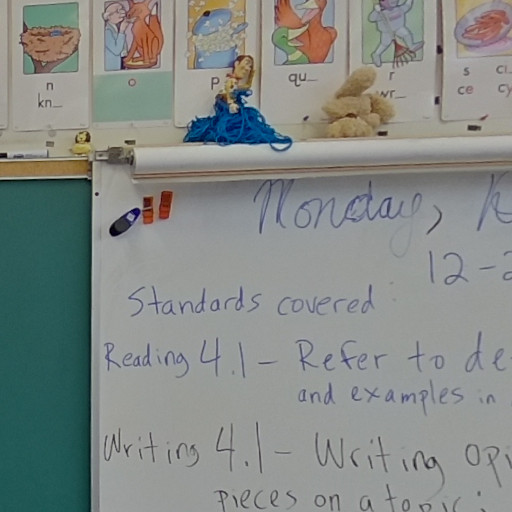 n
kn_
o
p
qu_
r
wr_
s
ce
Monday,
12-2
Standards covered:
Reading 4.1 - Refer to de
and examples in
Writing 4.1 - Writing opi
pieces on a topic;